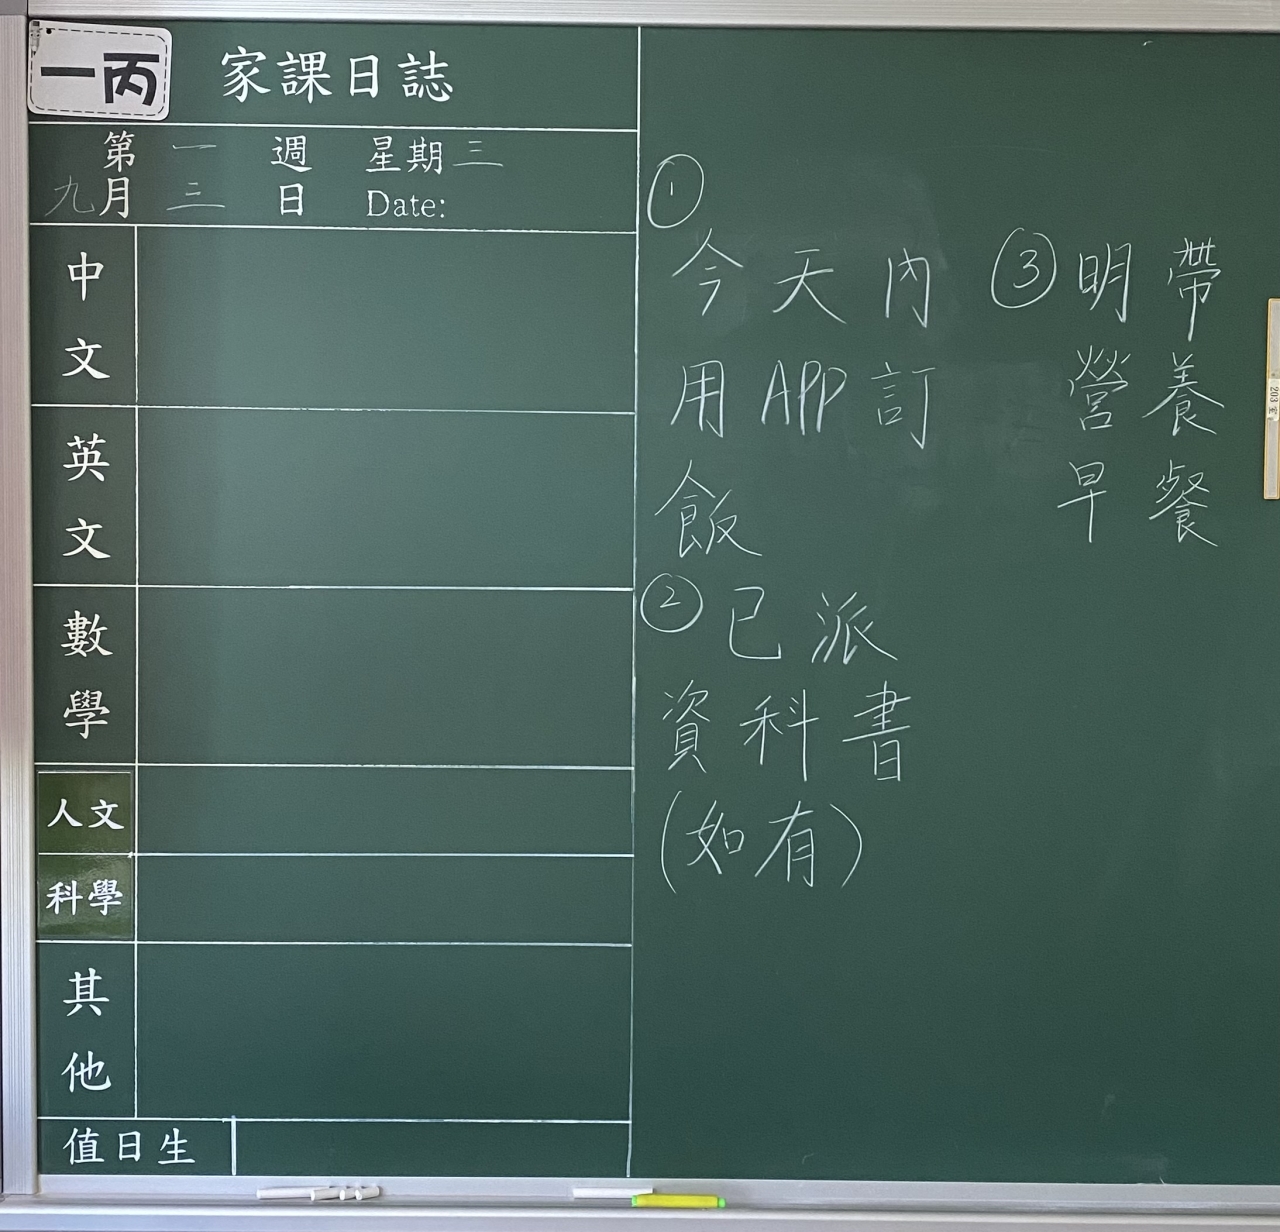 一丙
家課日誌
第一週 星期三
九月三日 Date:
中文
英文
數學
人文
科學
其他
值日生
①
今天內
用APP訂
飯
②已派
資科書
(如有)
③明帶
營養
早餐
203室